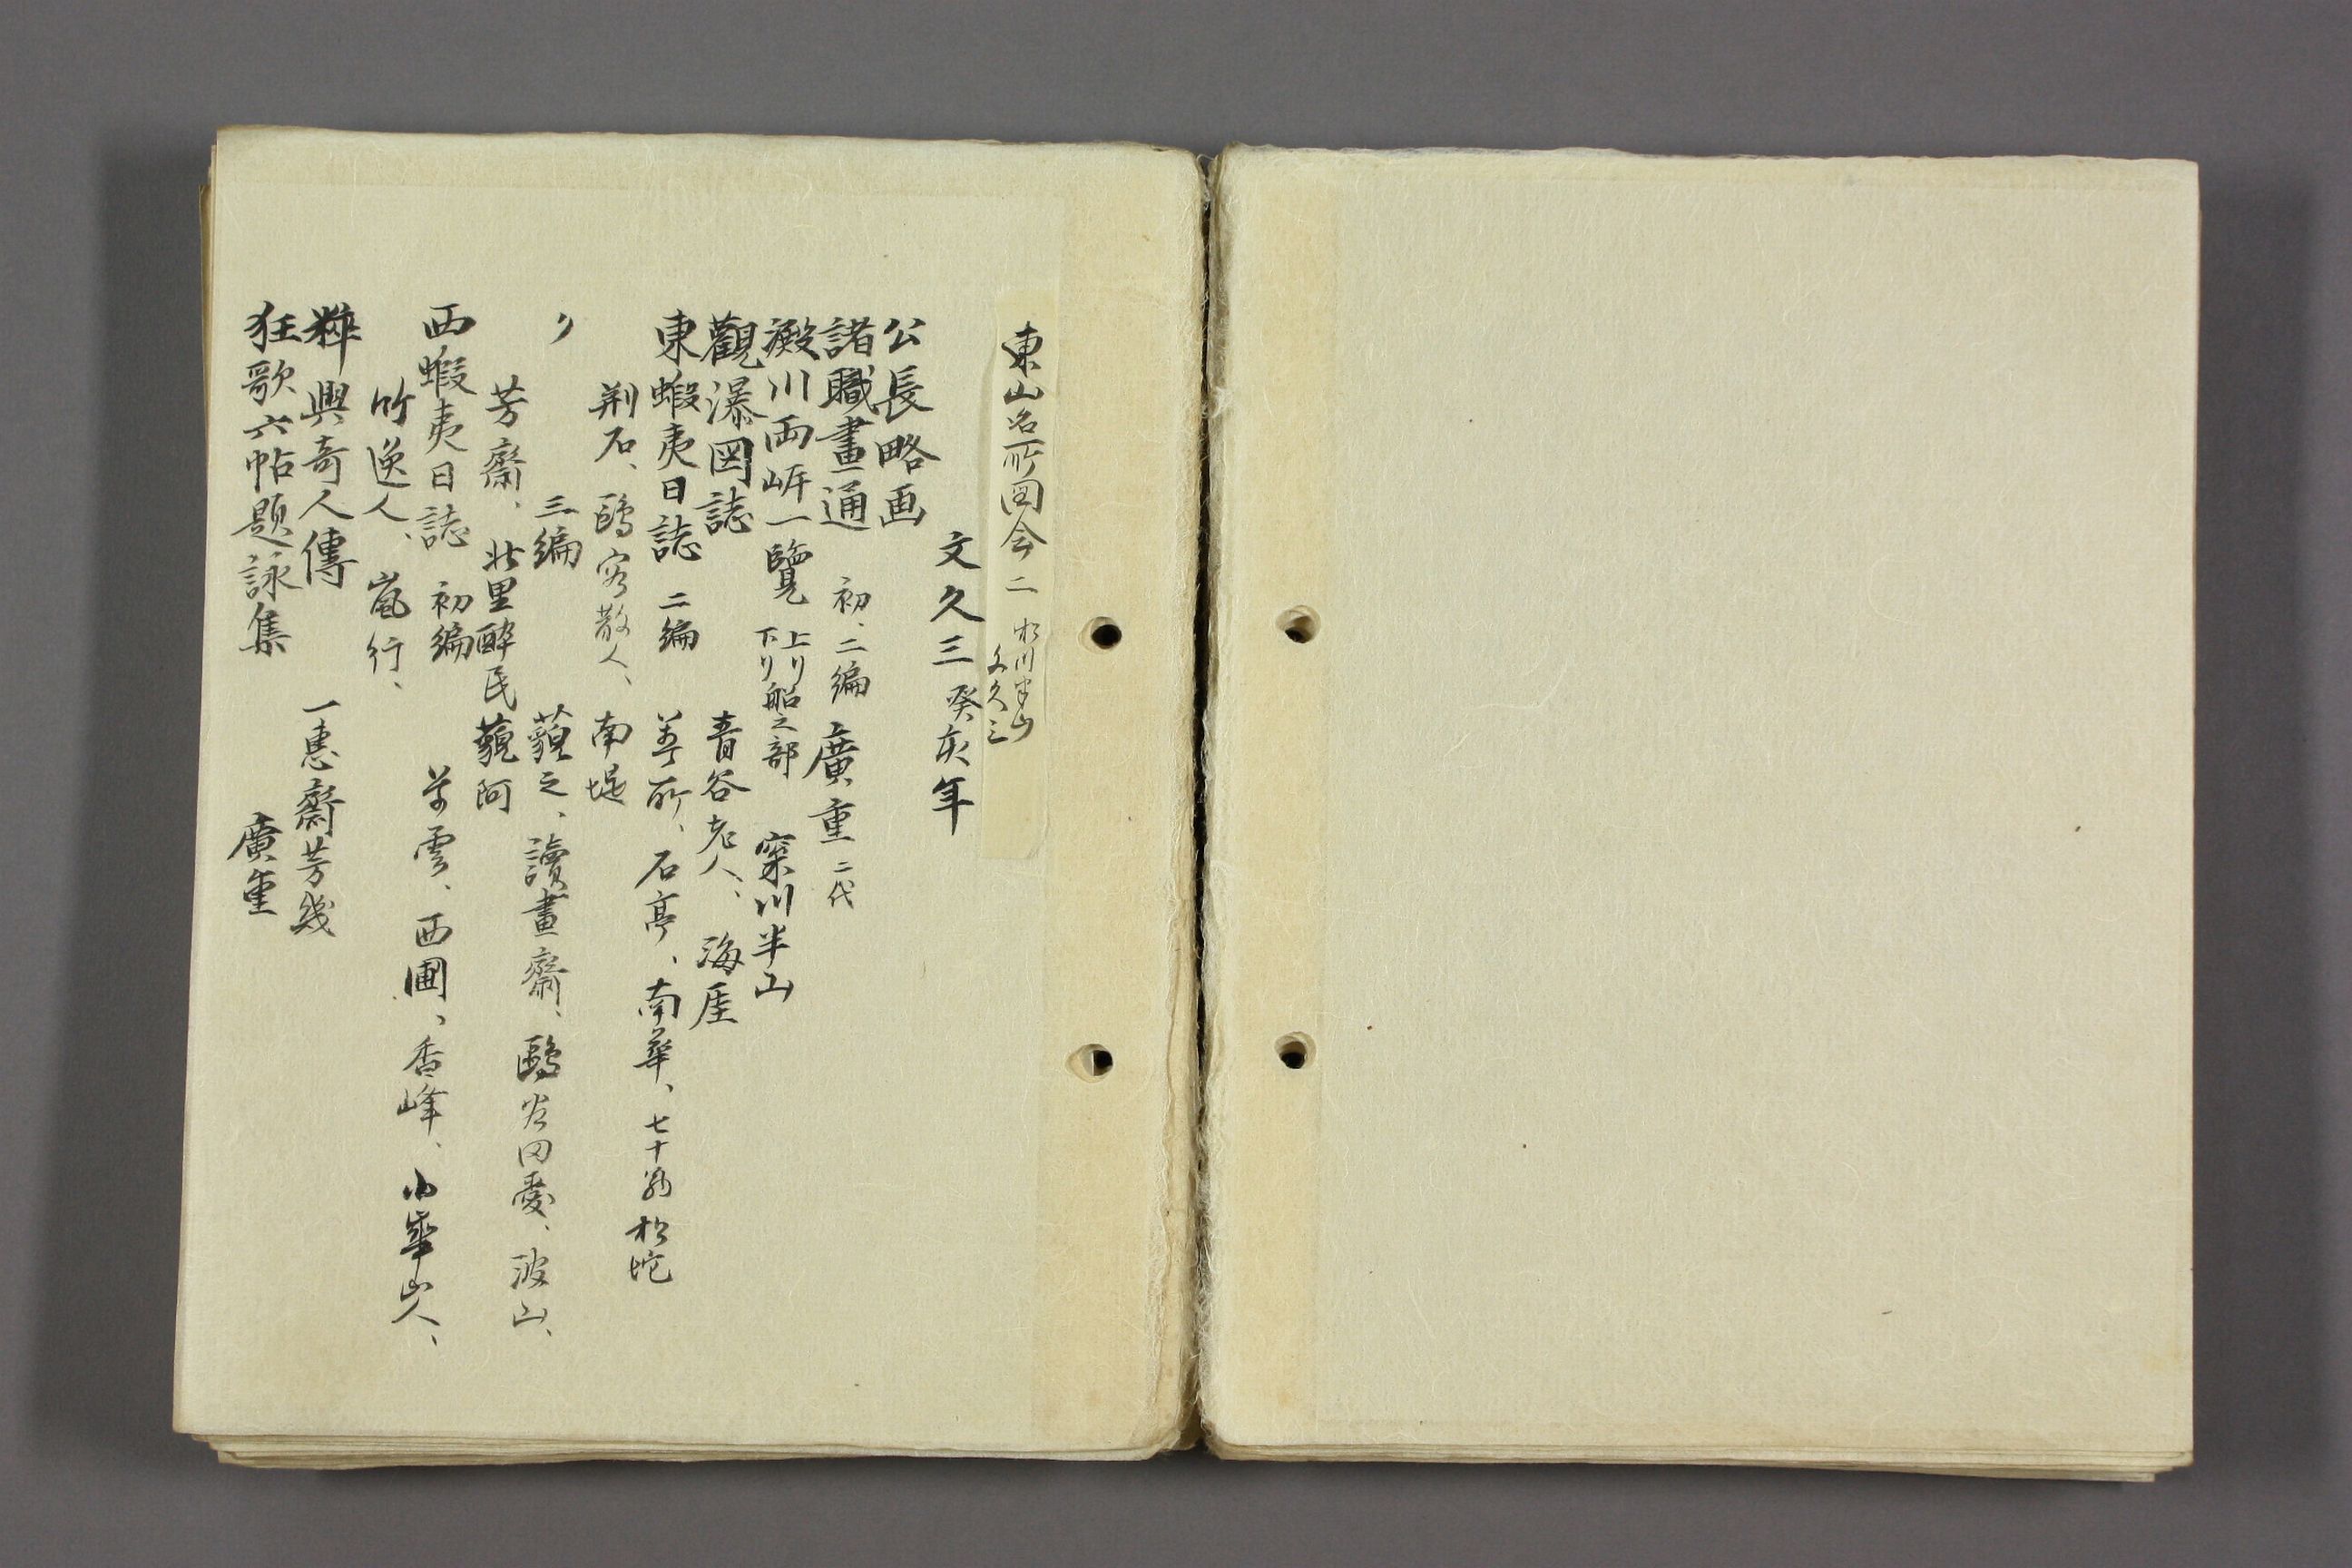 東山名所図会 二 松川半山
文久三
文久三 癸亥年
公長略画
諸職畫通 初、二編 廣重 二代
澱川両岸一覽 上り下り船之部 松川半山
觀瀑図誌 香谷老人、海厓
東蝦夷日誌 二編 萃所、石亭、南華、七十翁 松坨
荆石、鷗客散人、南堤
〃 三編 藐之、讀畫齋、鷗 田憂、波山、
芳齋、北里酔民 藐阿
西蝦夷日誌 初編 雲、西圃、香峰、小華山人、
竹逸人、嵐行、
粹興奇人傳 一惠齋芳幾
狂歌六帖題詠集 廣重